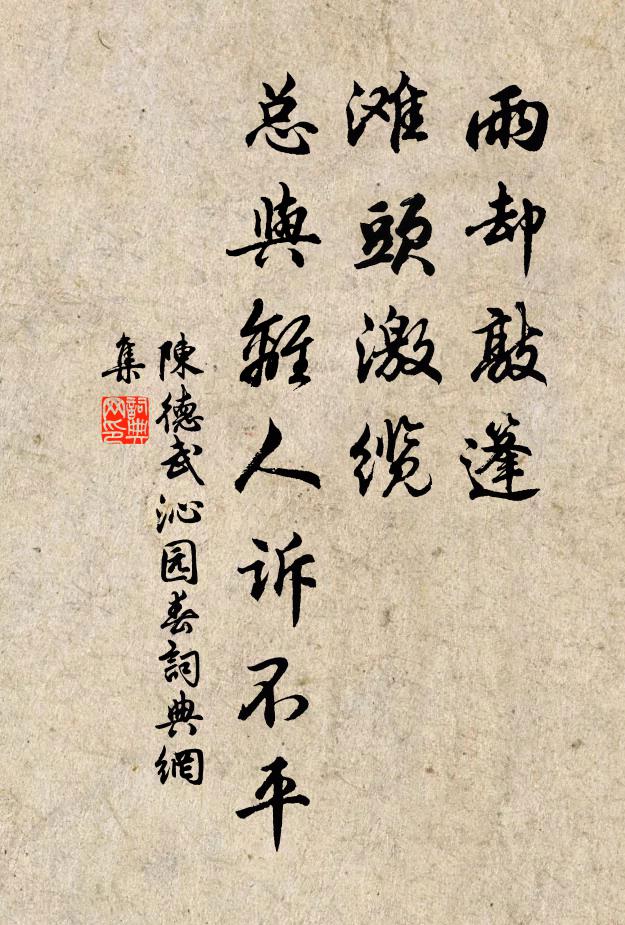 雨却敲篷
滩頭激缆
总與離人訴不平
陳德武沁园春詞典網
集
詞典网印